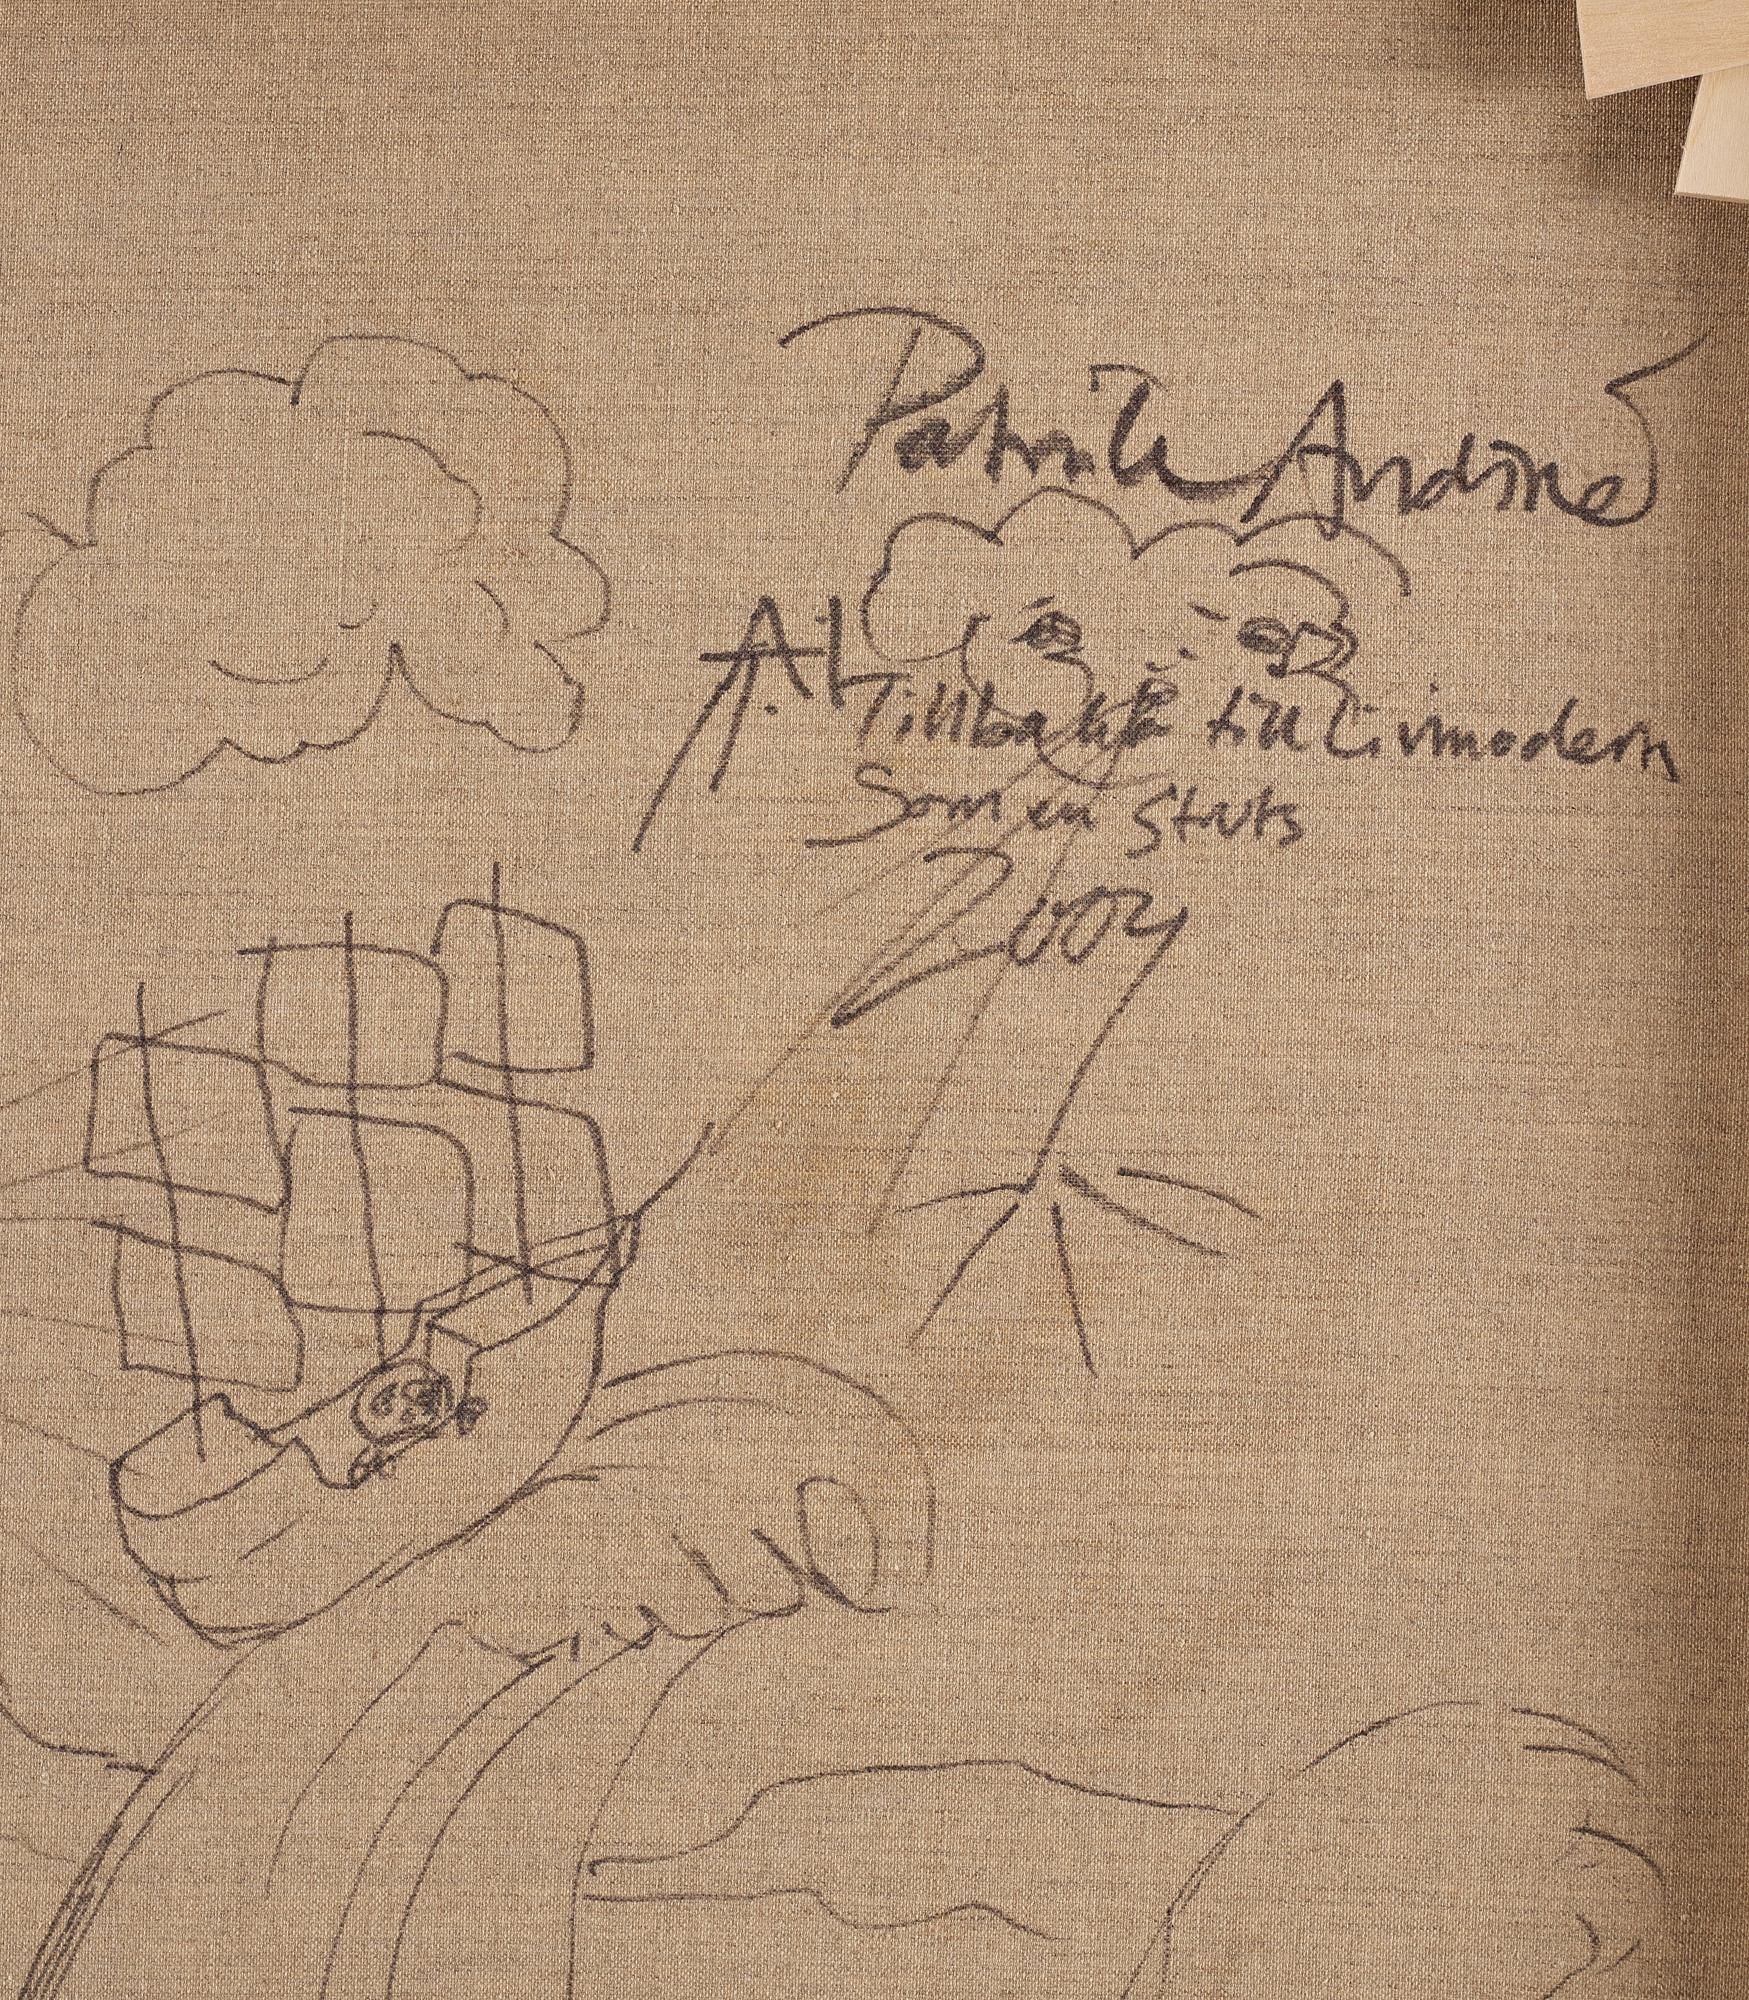 Patrik Andiné
A.L Tillbaka till Livmodern
Som en Struts
2004